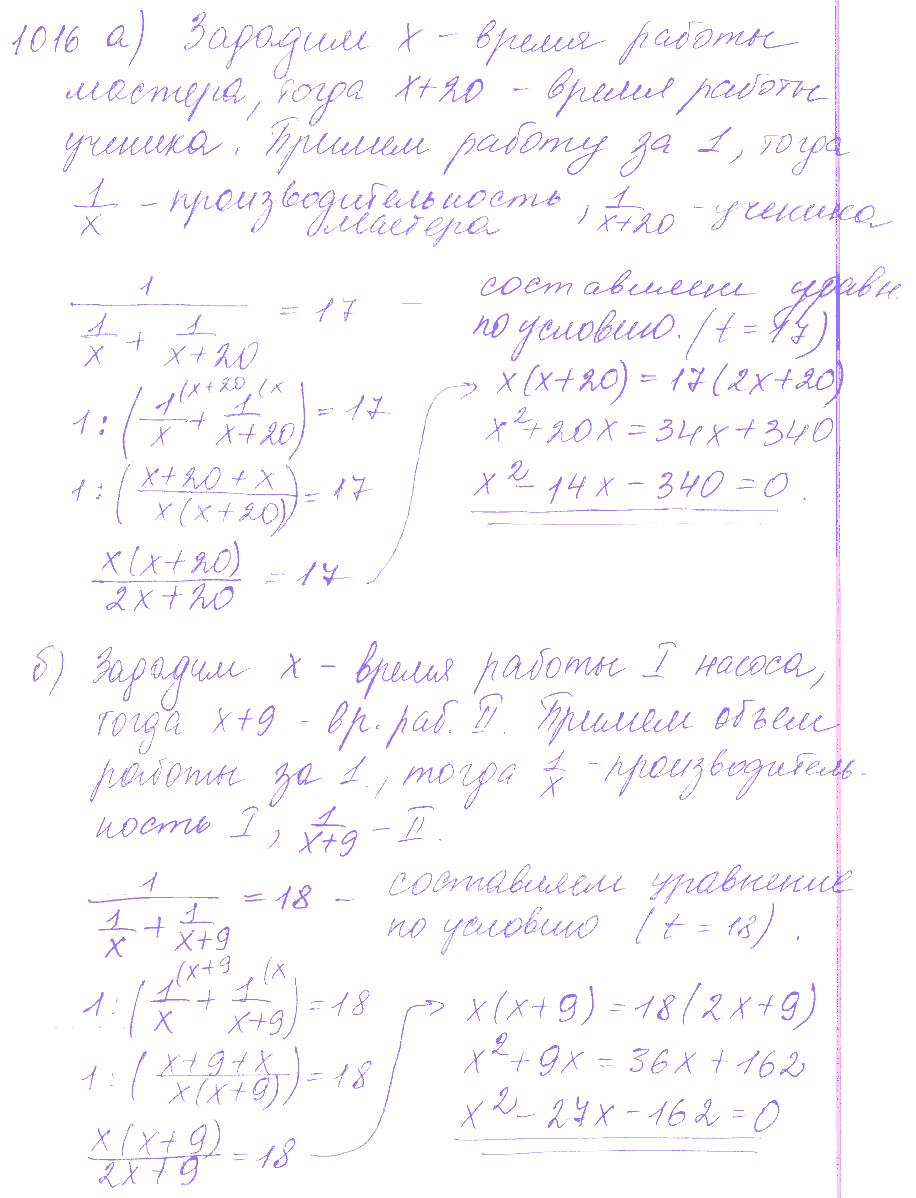 1016 а) Зададим x – время работы
мастера, тогда x+20 – время работы
ученика. Примем работу за 1, тогда
1/x – производительность мастера, 1/(x+20) – ученика
1/(1/x + 1/(x+20)) = 17 – составляем уравн.
по условию. (t = 17)
1 : (1(x+20/x + 1(x/(x+20)) = 17
1 : ((x+20+x)/(x(x+20))) = 17
x(x+20)/(2x+20) = 17
x(x+20) = 17(2x+20)
x²+20x = 34x+340
x² – 14x – 340 = 0.
б) Зададим x – время работы I насоса,
тогда x+9 – вр. раб. II. Примем объем
работы за 1, тогда 1/x – производитель-
ность I, 1/(x+9) – II.
1/(1/x + 1/(x+9)) = 18 – составляем уравнение
по условию (t = 18).
1 : (1(x+9/x + 1(x/(x+9)) = 18
1 : ((x+9+x)/(x(x+9))) = 18
x(x+9)/(2x+9) = 18
x(x+9) = 18(2x+9)
x²+9x = 36x+162
x² – 27x – 162 = 0